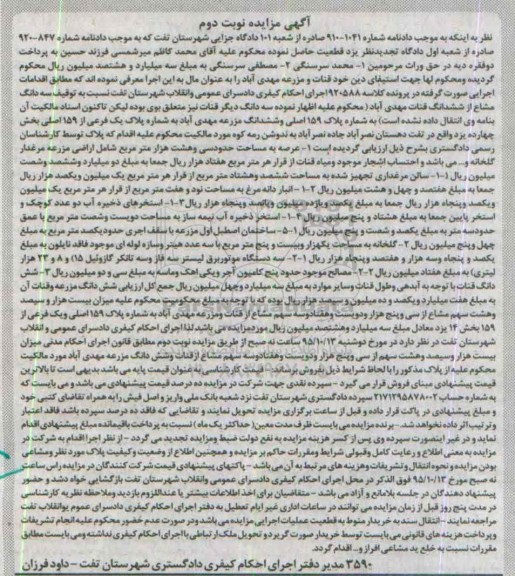 آگهی مزایده نوبت دوم
نظر به اینکه به موجب دادنامه شماره ۱۰۴۱-۹۱۰ صادره از شعبه ۱۰۱ دادگاه جزایی شهرستان تفت که به موجب دادنامه شماره ۸۴۷-۹۲۰
صادره از شعبه اول دادگاه تجدیدنظر یزد قطعیت حاصل نموده محکوم علیه آقای محمد کاظم میرشمسی فرزند حسین به پرداخت
دوفقره دیه در حق وراث مرحومین ۱- محمد سرسنگی ۲- مصطفی سرسنگی به مبلغ سه میلیارد و هشتصد میلیون ریال محکوم
گردیده ومحکوم لها جهت استیفای دین خود قنات و مزرعه مهدی آباد را به عنوان مال به این اجرا معرفی نموده اند که مطابق اقدامات
اجرایی صورت گرفته در پرونده کلاسه ۹۲۰۵۸۸ اجرای احکام کیفری دادسرای عمومی وانقلاب شهرستان تفت نسبت به توقیف سه دانگ
مشاع از ششدانگ قنات مهدی آباد (محکوم علیه اظهار نموده سه دانگ دیگر قنات نیز متعلق بوی بوده لیکن تاکنون اسناد مالکیت آن
بنامه وی انتقال داده نشده است) به شماره پلاک ۱۵۹ اصلی وششدانگ مزرعه مهدی آباد به شماره پلاک یک فرعی از ۱۵۹ اصلی بخش
چهارده یزد واقع در تفت دهستان نصر آباد جاده نصر آباد به ندوشن رمه کوه مورد مالکیت محکوم علیه اقدام که پلاک توسط کارشناسان
رسمی دادگستری بشرح ذیل ارزیابی گردیده است ۱- عرصه به مساحت حدودسی وهشت هزار متر مربع شامل اراضی مزرعه مرغدار
گلخانه و... می باشد و احتساب اشجار موجود ومیاه قنات از قرار هر متر مربع هفتاد هزار ریال جمعا به مبلغ دو میلیارد وششصد وشصت
میلیون ریال ۱-۱- سالن مرغداری تجهیز شده به مساحت ششصد وهشتاد متر مربع از قرار هر متر مربع یک میلیون ویکصد هزار ریال
جمعا به مبلغ هفتصد و چهل و هشت میلیون ریال ۲-۱- انبار دانه مرغ به مساحت نود و هفت متر مربع از قرار هر متر مربع یک میلیون
ویکصد وپنجاه هزار ریال جمعا به مبلغ یکصد ویازده میلیون وپانصد وپنجاه هزار ریال ۳-۱- استخرهای ذخیره آب دو عدد کوچک و
استخر پایین جمعا به مبلغ هشتاد و پنج میلیون ریال ۴-۱- استخر ذخیره آب نیمه ساز به مساحت دویست وشصت متر مربع با عمق
حدودسه متر به مبلغ یکصد وشصت میلیون ریال ۵-۱- ساختمان اصطبل اول مزرعه با سقف اجری حدودیکصد متر مربع به مبلغ
چهل وپنج میلیون ریال ۲- گلخانه به مساحت یکهزار وبیست و پنج متر مربع با سه عدد هیتر وسازه لوله ای موجود فاقد نایلون به مبلغ
یکصد و پنجاه وسه هزار و هفتصد وپنجاه هزار ریال ۱-۲- دستگاه موتوربرق لیستر سه فاز وسه تانکر گازوئیل ۱۵) و ۸ و ۲۳ هزار
لیتری) به مبلغ هفتاد میلیون ریال ۲-۲- مصالح موجود حدود پنج کامیون آجر ویکی اهک وماسه به مبلغ سی و دو میلیون ریال ۳- شش
دانگ قنات با توجه به آبدهی وطول قنات وسایر موارد به مبلغ سه میلیارد وچهل میلیون ریال جمع کل ارزیابی شش دانگ مزرعه وقنات آن
به مبلغ هفت میلیارد ویکصد و سه میلیون و سیصد هزار ریال بوده که با توجه به مبلغ محکومیت محکوم علیه میزان بیست هزار و سیصد
وهشت سهم مشاع از سی وپنج هزار ودویست وهفتادوسه سهم مشاع از قنات ومزرعه مهدی آباد به شماره پلاک ۱۵۹ اصلی ویک فرعی از
۱۵۹ بخش ۱۴ یزد معادل مبلغ سه میلیارد وهشتصد میلیون ریال موردمزایده می باشد لذا اجرای احکام کیفری دادسرای عمومی و انقلاب
شهرستان تفت در نظر دارد در مورخ دوشنبه ۹۵/۱۰/۱۳ ساعت نه صبح از طریق مزایده نوبت دوم مطابق قانون اجرای احکام مدنی میزان
بیست هزار وسیصد وهشت سهم از سی وپنج هزار ودویست وهفتادوسه سهم مشاع از قنات وشش دانگ مزرعه مهدی آباد مورد مالکیت
محکوم علیه از پلاک مذکور را با لحاظ شرایط ذیل بفروش برساند قیمت کارشناسی به عنوان قیمت پایه می باشد بدیهی است تا بالاترین
قیمت پیشنهادی مبنای فروش قرار می گیرد -سپرده نقدی جهت شرکت در مزایده ده درصد قیمت پیشنهادی می باشد و می بایست که
به شماره حساب ۲۱۷۱۲۹۵۸۷۸۰۰۲ سپرده دادگستری شهرستان تفت نزد شعبه بانک ملی واریز و اصل فیش را به همراه تقاضای کتبی خود
و مبلغ پیشنهادی در پاکت قرار داده و قبل از ساعت برگزاری مزایده تحویل نمایند و تقاضایی که فاقد ده درصد سپرده باشد فاقد اعتبار
و ترتیب اثر داده نخواهد شد- برنده مزایده می بایست ظرف مدت معین( حداکثر یک ماه ) نسبت به پرداخت باقیمانده مبلغ پیشنهادی اقدام
نماید و در غیر اینصورت سپرده وی پس از کسر هزینه مزایده به نفع دولت ضبط ومزایده تجدید می گردد - از نظر اجرا اقدام به شرکت در
مزایده به معنی اطلاع و رعایت کامل وقبولی شرایط ومقررات حاکم بر مزایده و همچنین اطلاع از وضعیت وکیفیت پلاک مورد نظر ومشاعی
بودن مزایده و نحوه انتقال و تشریفات وهزینه های مرتبط به آن می باشد - پاکتهای پیشنهادی قیمت شرکت کنندگان در مزایده راس ساعت
نه صبح مورخ ۹۵/۱۰/۱۳ فوق الذکر در محل اجرای احکام کیفری دادسرای عمومی وانقلاب شهرستان تفت بازگشایی خواه دشد و حضور
پیشنهاد دهندگان در جلسه بلامانع و آزاد می باشد - متقاضیان برای اخذ اطلاعات بیشتر یا عنداللزوم بازدید وملاحظه نظریه کارشناسی
در مدت پنج روز قبل از زمان مزایده می توانند در ساعات اداری غیر ایام تعطیل به دفتر اجرای احکام کیفری دادسرای عموم یوانقلاب تفت
مراجعه نمایند - انتقال سند به خریدار منوط به قطعیت عملیات اجرایی مزایده می باشد ودر صورت عدم حضور محکوم علیه انجام تشریفات
وپرداخت هزینه های قانونی می بایست توسط خریدار صورت گیرد و تحویل ملک ارتباطی با اجرای احکام کیفری نداشته ومی بایست مطابق
مقررات نسبت به خلع ید مشاعی افراز و... اقدام گردد.
۳۵۹۰ مدیر دفتر اجرای احکام کیفری دادگستری شهرستان تفت - داود فرزان